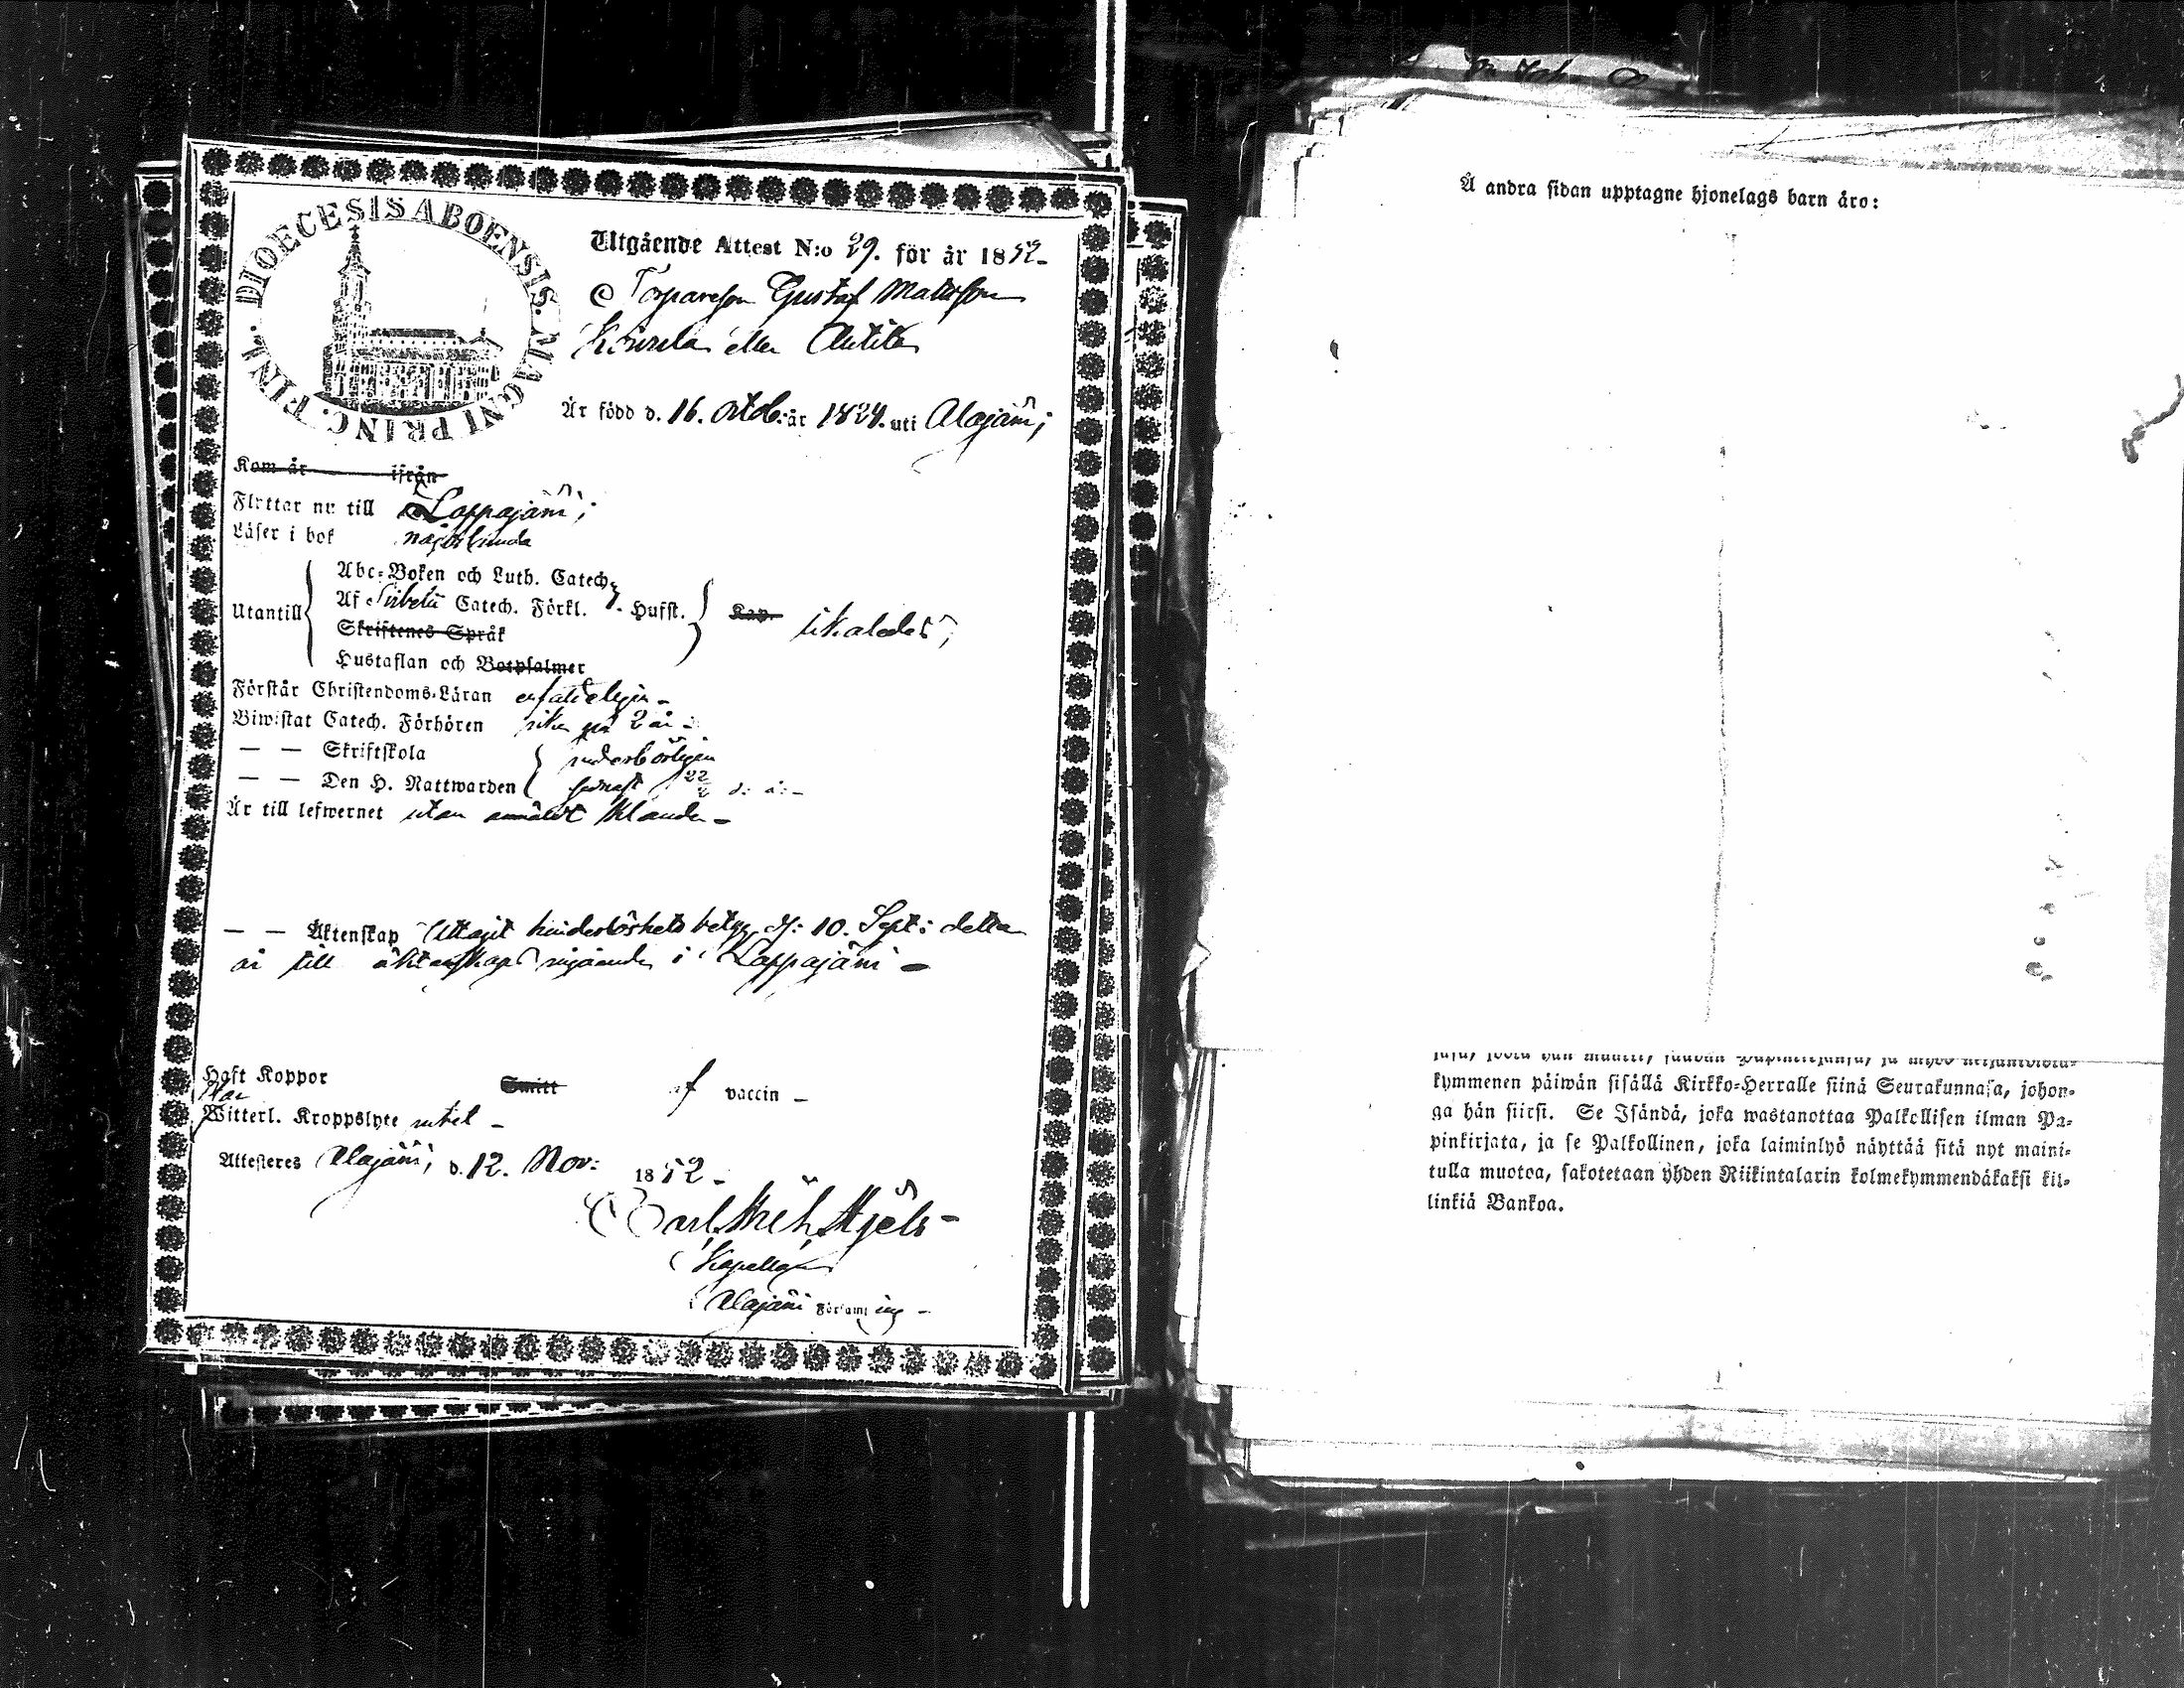 DIOECESIS ABOENSIS. MAGNI PRINC. FINL.
Utgående Attest N:o 29. för år 1852-
Torpareson Gustaf Mattsson
eller Anttila
Är född d. 16. Octob: år 1824. uti Alajärvi;
Kom år ifrån
Flyttar nu till Lappajärvi;
Läser i bok någorlunda
Utantill
Abc-Boken och Luth. Catech.
Af Catech. Förkl. Husft.
Skriftenes Språk
Hustaflan och Botpsalmer
Kap. likaledes;
Förstår Christendoms-Läran enfaldeligen -
Biwistat Catech. Förhören på 2 år -
— — Skriftskola
— — Den H. Nattwarden senast 22 d: å: -
Är till lefwernet utan anmäldt klander -
— — Äktenskap Uttagit hinderlöshets betyg d: 10. Sept: detta
år till äktenskaps ingående i Lappajärvi -
Haft Koppor Smitt af vaccin -
Har
Witterl. Kroppslyte intet -
Attesteres Alajärvi, d. 12. Nov: 1852 -
Carl
Kapellan
Alajärvi Församling -
Å andra sidan upptagne hjonelags barn äro:
kymmenen päiwän sisällä Kirkko-Herralle siinä Seurakunnasa, johon-
ga hän siirsi. Se Isändä, joka wastanottaa Palkollisen ilman Pa-
pinkirjata, ja se Palkollinen, joka laiminlyö näyttää sitä nyt maini-
tulla muotoa, sakotetaan yhden Riikintalarin kolmekymmendäkaksi kil-
linkiä Bankoa.